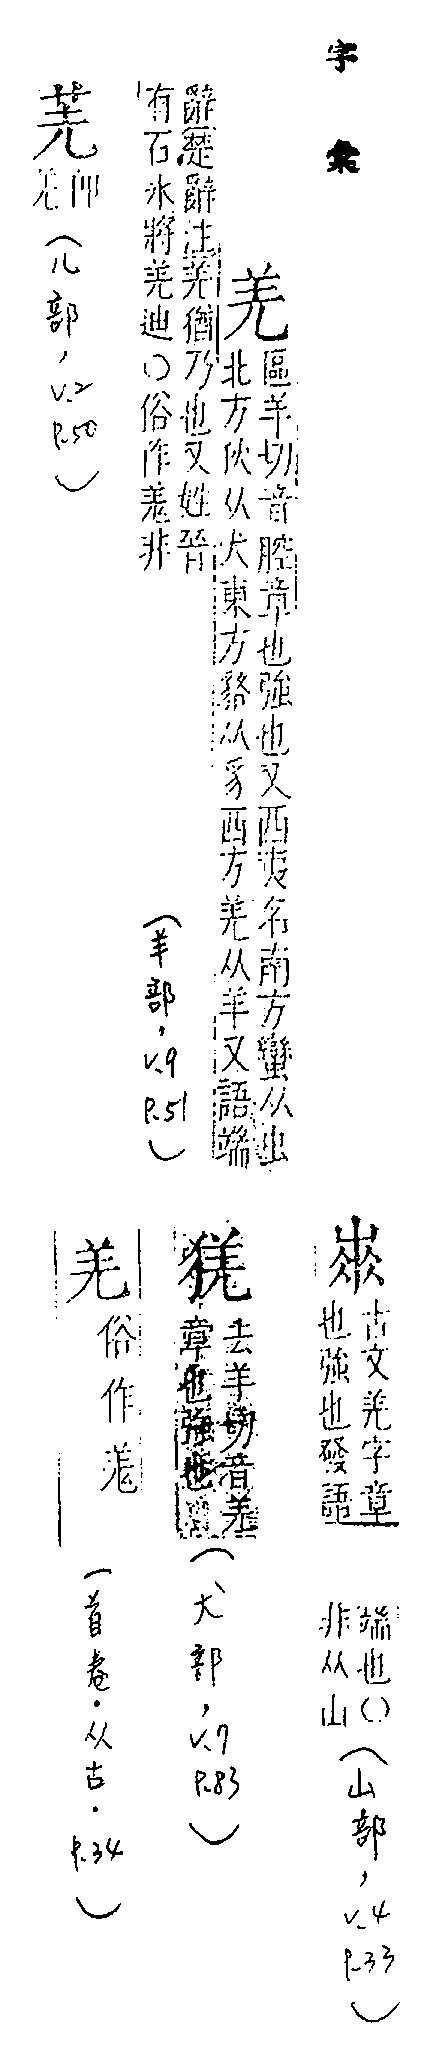 字彙
羌
區羊切音腔章也強也又西夷名南方蠻从虫
北方狄从犬東方貉从豸西方羌从羊又語端
辭楚辭注羌猶乃也又姓晉
有石氷將羌迪○俗作羗非
(羊部, V.9 P.51)
羌
(儿部, V.2 P.50)
古文羌字章
也強也發語
端也○
非从山
(山部, V.4 P.33)
去羊切音羌
章也強也
(犬部, V.7 P.83)
羌
俗作羗
(首卷·从古· P.34)